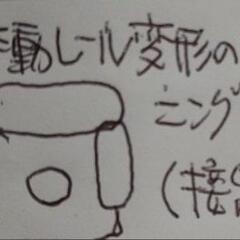 動レール変形の
ニング
(接